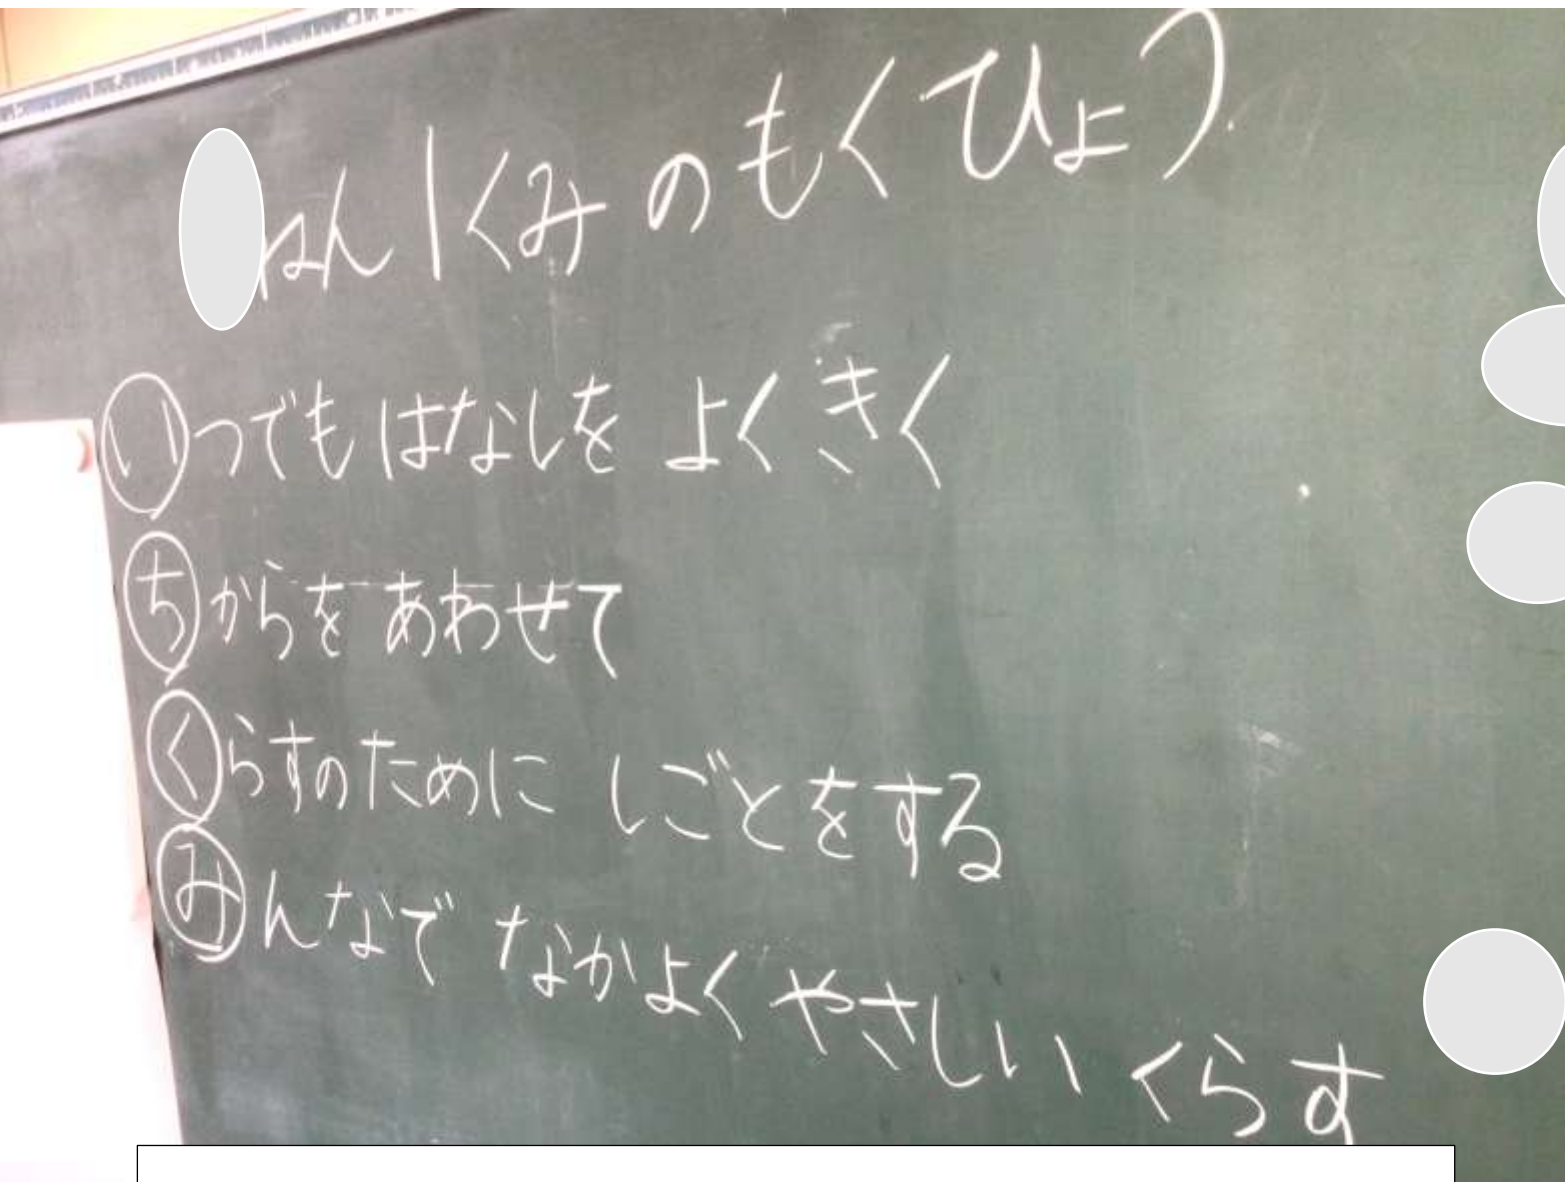 ねん1くみのもくひょう
いつでもはなしを よくきく
ちからを あわせて
くらすのために しごとをする
みんなで なかよく やさしい くらす